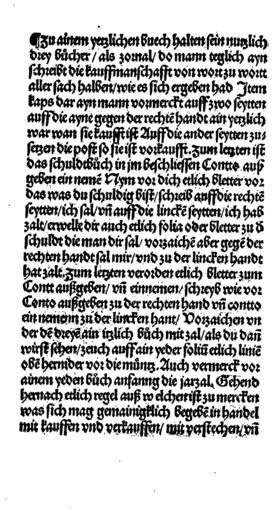 ¶Zu ainem yetzlichen buech halten sein nutzlich
drey bücher/ als zornal/ do mann teglich ayn
schreibt die kauffmanschafft von wort zu wortt
aller sach halben/ wie es sich ergeben had Item
kaps dar ayn mann vormerckt auff zwo seytten
auff die ayne gegen der rechtē handt ain yetzlich
war wan sie kaufft ist Auff die ander seytten zus
setzen die post so sie ist vorkaufft. Zum letzten ist
das schuldtbůch in jm beschliessen Contto auß
geben ein nemē Nym vor dich etlich bletter vor
das was du schuldig bist/ schreib anff die rechtē
seytten/ ich sal/ vn̄ auff die linckē seytten/ ich hab
zalt/ erwelle dir auch etlich folia oder bletter zu d̄
schuldt die man dir sal/ vorzaichē aber gegē der
rechten handt sal mir/ vnd zu der lincken handt
hat zalt. Zum letzten verorden etlich bletter zum
Contt außgeben/ vn̄ einnemen/ schreyb wie vor
Conto außgeben zu der rechten hand vn̄ contto
ein nemenn zu der lincken hant/ Vorzaichen vn
der dē dreyē ain itzlich bůch mit zal/ als du dan̄
wirst sehen/ zeuch auff ain yeder foliū etlich liniē
obē hernider vor die müntz. Auch vermerck vor
ainem yeden bůch anfanng die jarzal. Gehend
hernach etlich regel auß welchen ist zu mercken
was sich mag gemainigklich begebē in handel
mit kauffen vnd verkauffen/ mit verstechen/ vn̄